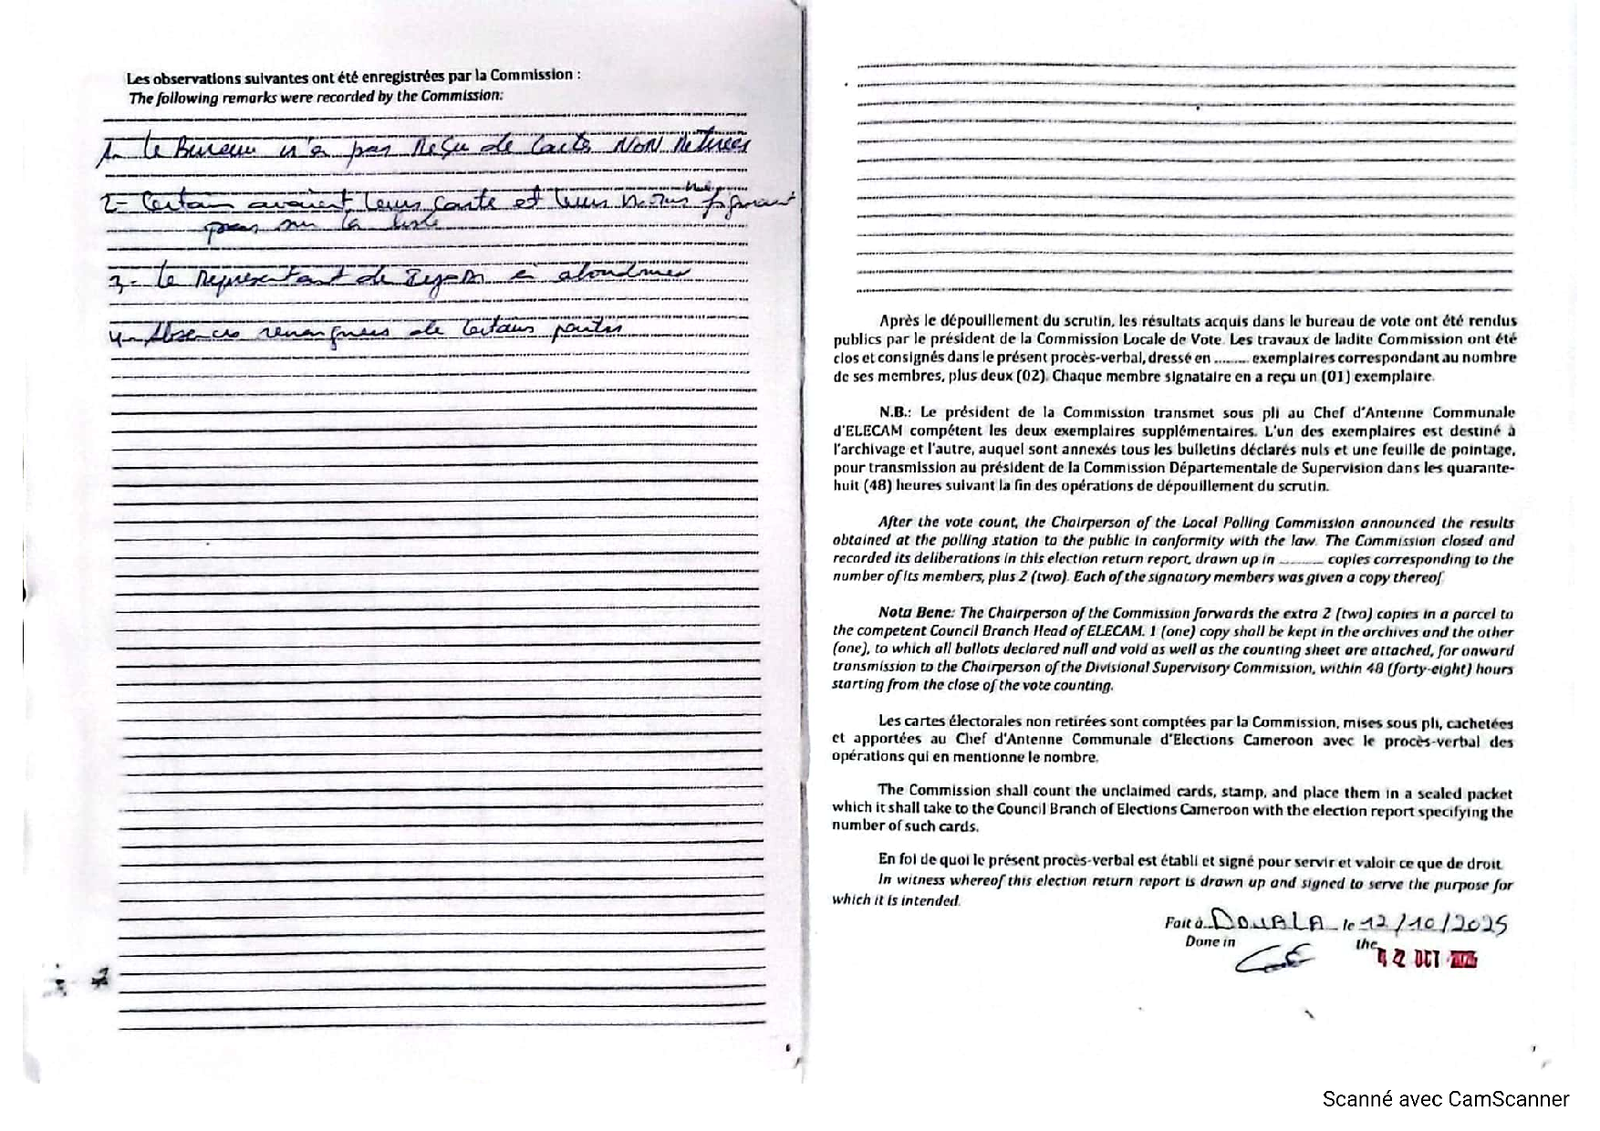 Les observations suivantes ont été enregistrées par la Commission :
The following remarks were recorded by the Commission:
1- Le Bureau n'a pas Reçu de Carte NON Retirées
2- Certain avaient leurs carte et leurs noms ne figurait
pas sur la liste
3- Le Representant de a abandonner
4- Absences remarquees de Certains partis
Après le dépouillement du scrutin, les résultats acquis dans le bureau de vote ont été rendus
publics par le président de la Commission Locale de Vote. Les travaux de ladite Commission ont été
clos et consignés dans le présent procès-verbal, dressé en ......... exemplaires correspondant au nombre
de ses membres, plus deux (02). Chaque membre signataire en a reçu un (01) exemplaire.
N.B.: Le président de la Commission transmet sous pli au Chef d'Antenne Communale
d'ELECAM compétent les deux exemplaires supplémentaires. L'un des exemplaires est destiné à
l'archivage et l'autre, auquel sont annexés tous les bulletins déclarés nuls et une feuille de pointage,
pour transmission au président de la Commission Départementale de Supervision dans les quarante-
huit (48) heures suivant la fin des opérations de dépouillement du scrutin.
After the vote count, the Chairperson of the Local Polling Commission announced the results
obtained at the polling station to the public in conformity with the law. The Commission closed and
recorded its deliberations in this election return report, drawn up in ........... copies corresponding to the
number of its members, plus 2 (two). Each of the signatory members was given a copy thereof
Nota Bene: The Chairperson of the Commission forwards the extra 2 (two) copies in a parcel to
the competent Council Branch Head of ELECAM. 1 (one) copy shall be kept in the archives and the other
(one), to which all ballots declared null and void as well as the counting sheet are attached, for onward
transmission to the Chairperson of the Divisional Supervisory Commission, within 48 (forty-eight) hours
starting from the close of the vote counting.
Les cartes électorales non retirées sont comptées par la Commission, mises sous pli, cachetées
et apportées au Chef d'Antenne Communale d'Elections Cameroon avec le procès-verbal des
opérations qui en mentionne le nombre.
The Commission shall count the unclaimed cards, stamp, and place them in a sealed packet
which it shall take to the Council Branch of Elections Cameroon with the election report specifying the
number of such cards.
En foi de quoi le présent procès-verbal est établi et signé pour servir et valoir ce que de droit
In witness whereof this election return report is drawn up and signed to serve the purpose for
which it is intended.
Fait à DOUALA le 12/10/2025
Done in the 12 OCT 2025
Scanné avec CamScanner